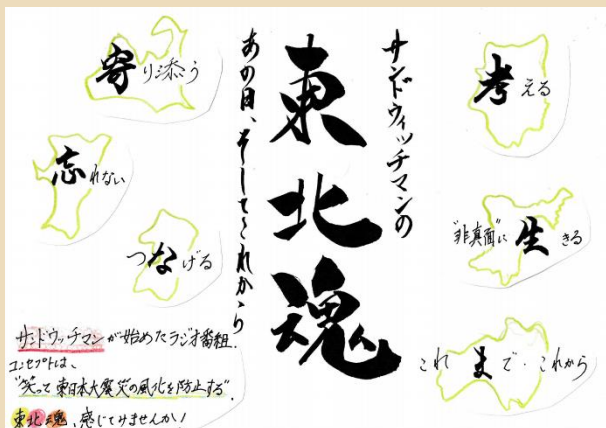 サンドウィッチマンの
東北魂
あの日、そしてこれから
考える
"非真面"に生きる
これまで・これから
寄り添う
忘れない
つなげる
サンドウッチマンが始めたラジオ番組.
コンセプトは、
"笑って東日本大震災の風化を防止する".
東北魂、感じてみませんか!